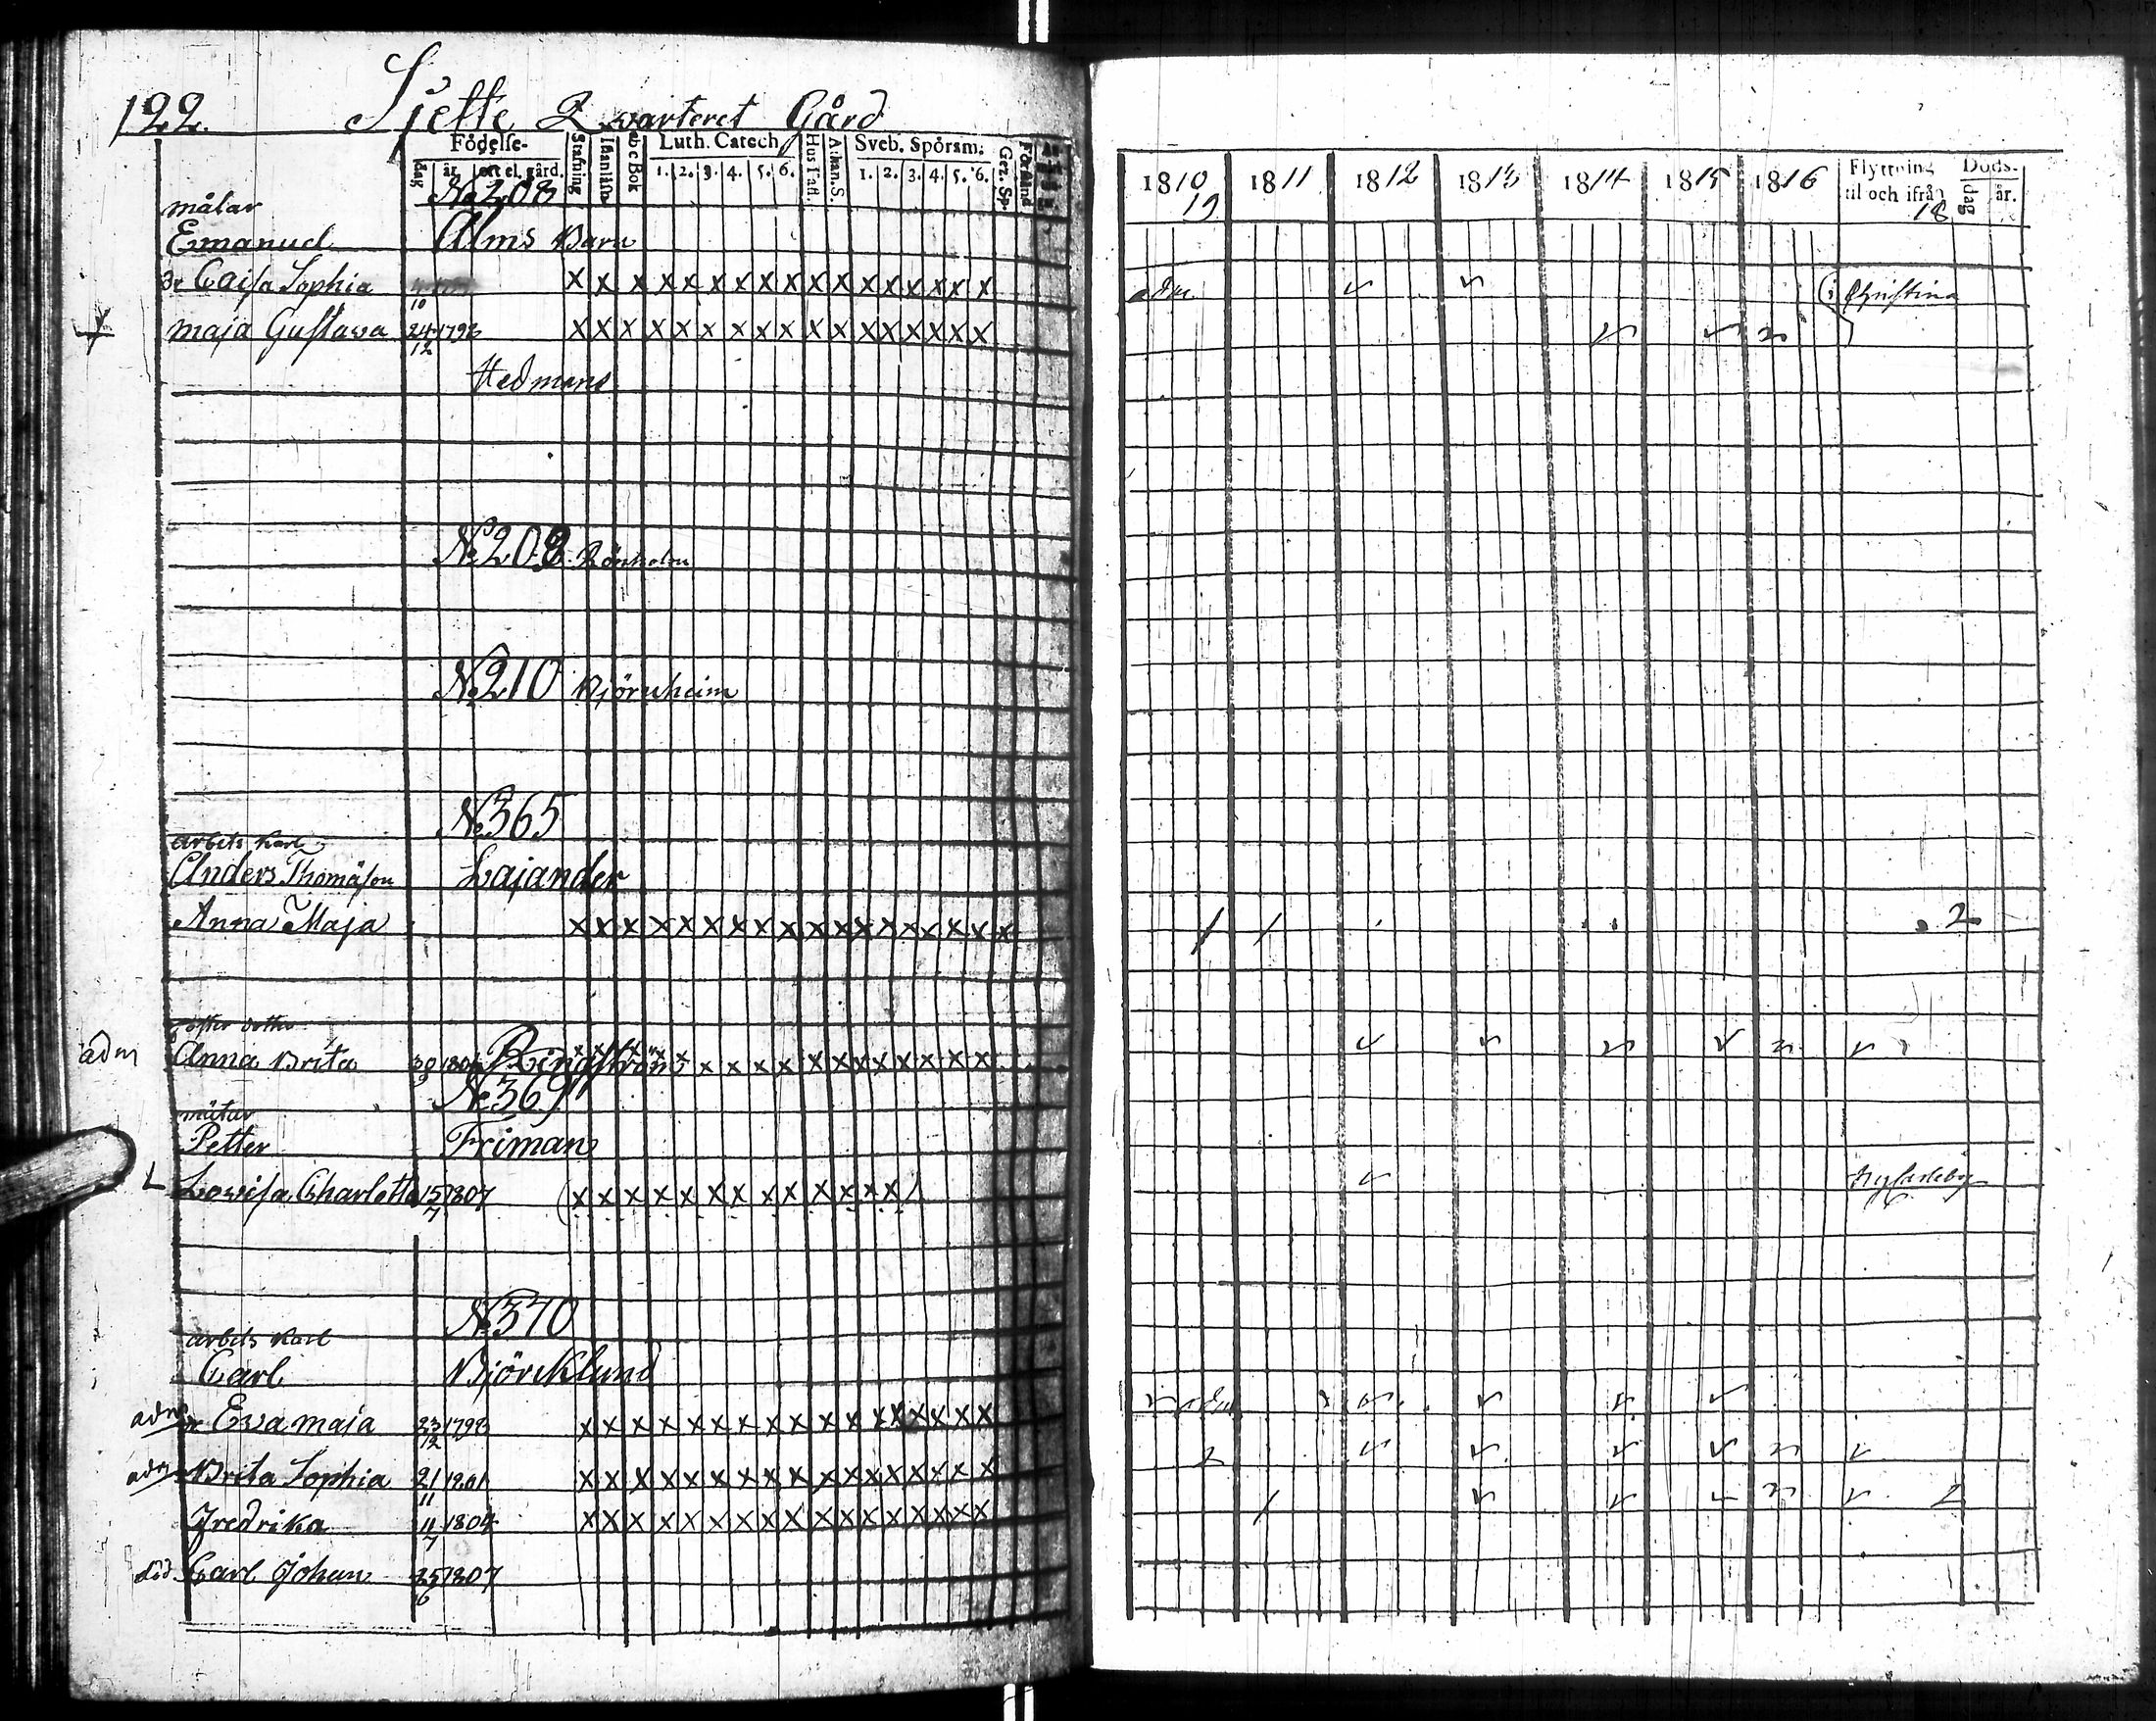 122. Sjette Qvarteret Gård
Födelse- Stafning Iñanläsn. abc Bok Luth. Catech. Hus Tafl. Athan. S. Sveb. Spörsm. Gez. Sp. Förstånd
dag år ort el. gård. 1. 2. 3. 4. 5. 6. 1. 2. 3. 4. 5. 6.
No 208
målar
Emanuel Alms Barn
dr Caisa Sophia 10 x x x x x x x x x x x x x x x x x
Maja Gustava 24/12 1793 x x x x x x x x x x x x x x x x x
Hedmans
No 208. Rönholm
No 210 Björnheim
No 365
arbets karl
Anders Thomasson Lajander
Anna Maja x x x x x x x x x x x x x x x x x x
foster dotter
adm Anna Brita 30/9 1801 Lindström x x x x x x x x x x x x x x x x x
No 369
mätar
Petter Friman
Lovisa Charlotta 15/7 1807 (x x x x x x x x x x x x x)
No 370
arbets karl
Carl Björcklund
adm dr Eva Maja 23/12 1798 x x x x x x x x x x x x x x x x x
adm Brita Sophia 21/11 1801 x x x x x x x x x x x x x x x x x
Fredrika 11/7 1804 x x x x x x x x x x x x x x x x x
död Carl Johan 25/6 1807
1810 1811 1812 1813 1814 1815 1816 Flyttning Döds-
19 til och ifrån 18 dag år.
adm. Christina
2
Ny Carleby
adm
2
2